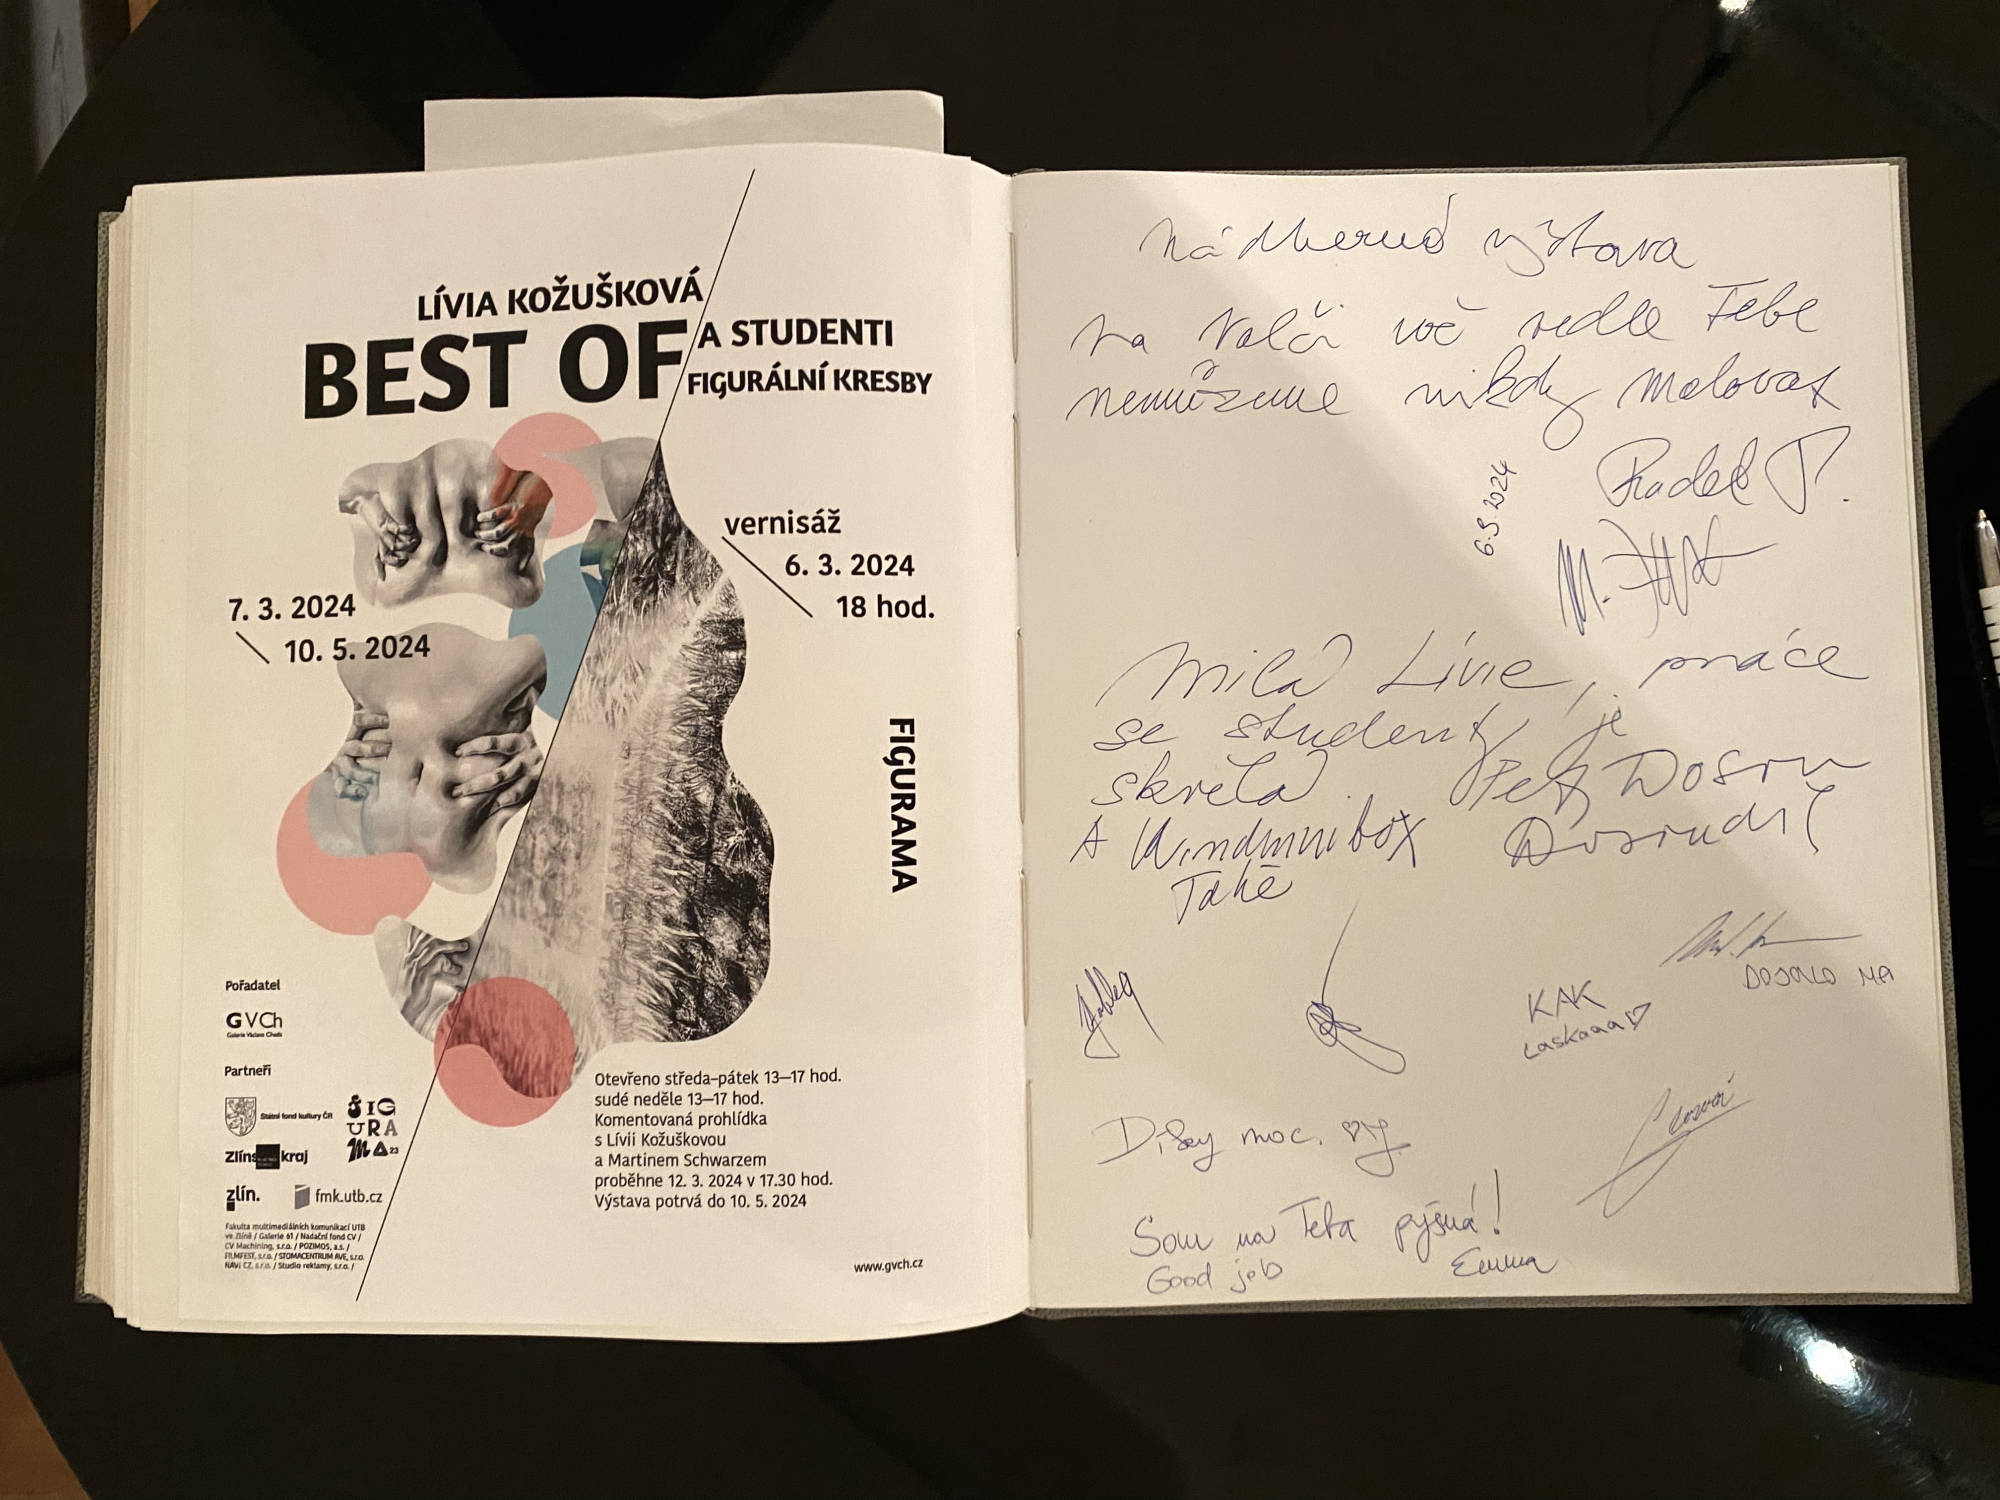 LÍVIA KOŽUŠKOVÁ
BEST OF
A STUDENTI
FIGURÁLNÍ KRESBY
vernisáž
6. 3. 2024
18 hod.
7. 3. 2024
10. 5. 2024
FIGURAMA
Pořadatel
GVCh
Galerie Václava Chada
Partneři
Státní fond kultury ČR
FIGURAMA23
Zlínský kraj
zlín.
fmk.utb.cz
Fakulta multimediálních komunikací UTB
ve Zlíně / Galerie 61 / Nadační fond CV /
CV Machining, s.r.o. / POZIMOS, a.s. /
FILMFEST, s.r.o. / STOMACENTRUM AVE, s.r.o.
NAVI CZ, s.r.o. / Studio reklamy, s.r.o. /
Otevřeno středa–pátek 13—17 hod.
sudé neděle 13—17 hod.
Komentovaná prohlídka
s Lívií Kožuškovou
a Martinem Schwarzem
proběhne 12. 3. 2024 v 17.30 hod.
Výstava potrvá do 10. 5. 2024
www.gvch.cz
nádherná výstava
vedle Tebe
nemůžeme nikdy malovat
Radek P.
6.3.2024
Milá Lívie, práce
se studenty je
skvělá.
A
Také
DOJALO MA
KAK
Laskaaa♡
Díky moc.
Som na Teba pyšná!
Good job
Emma